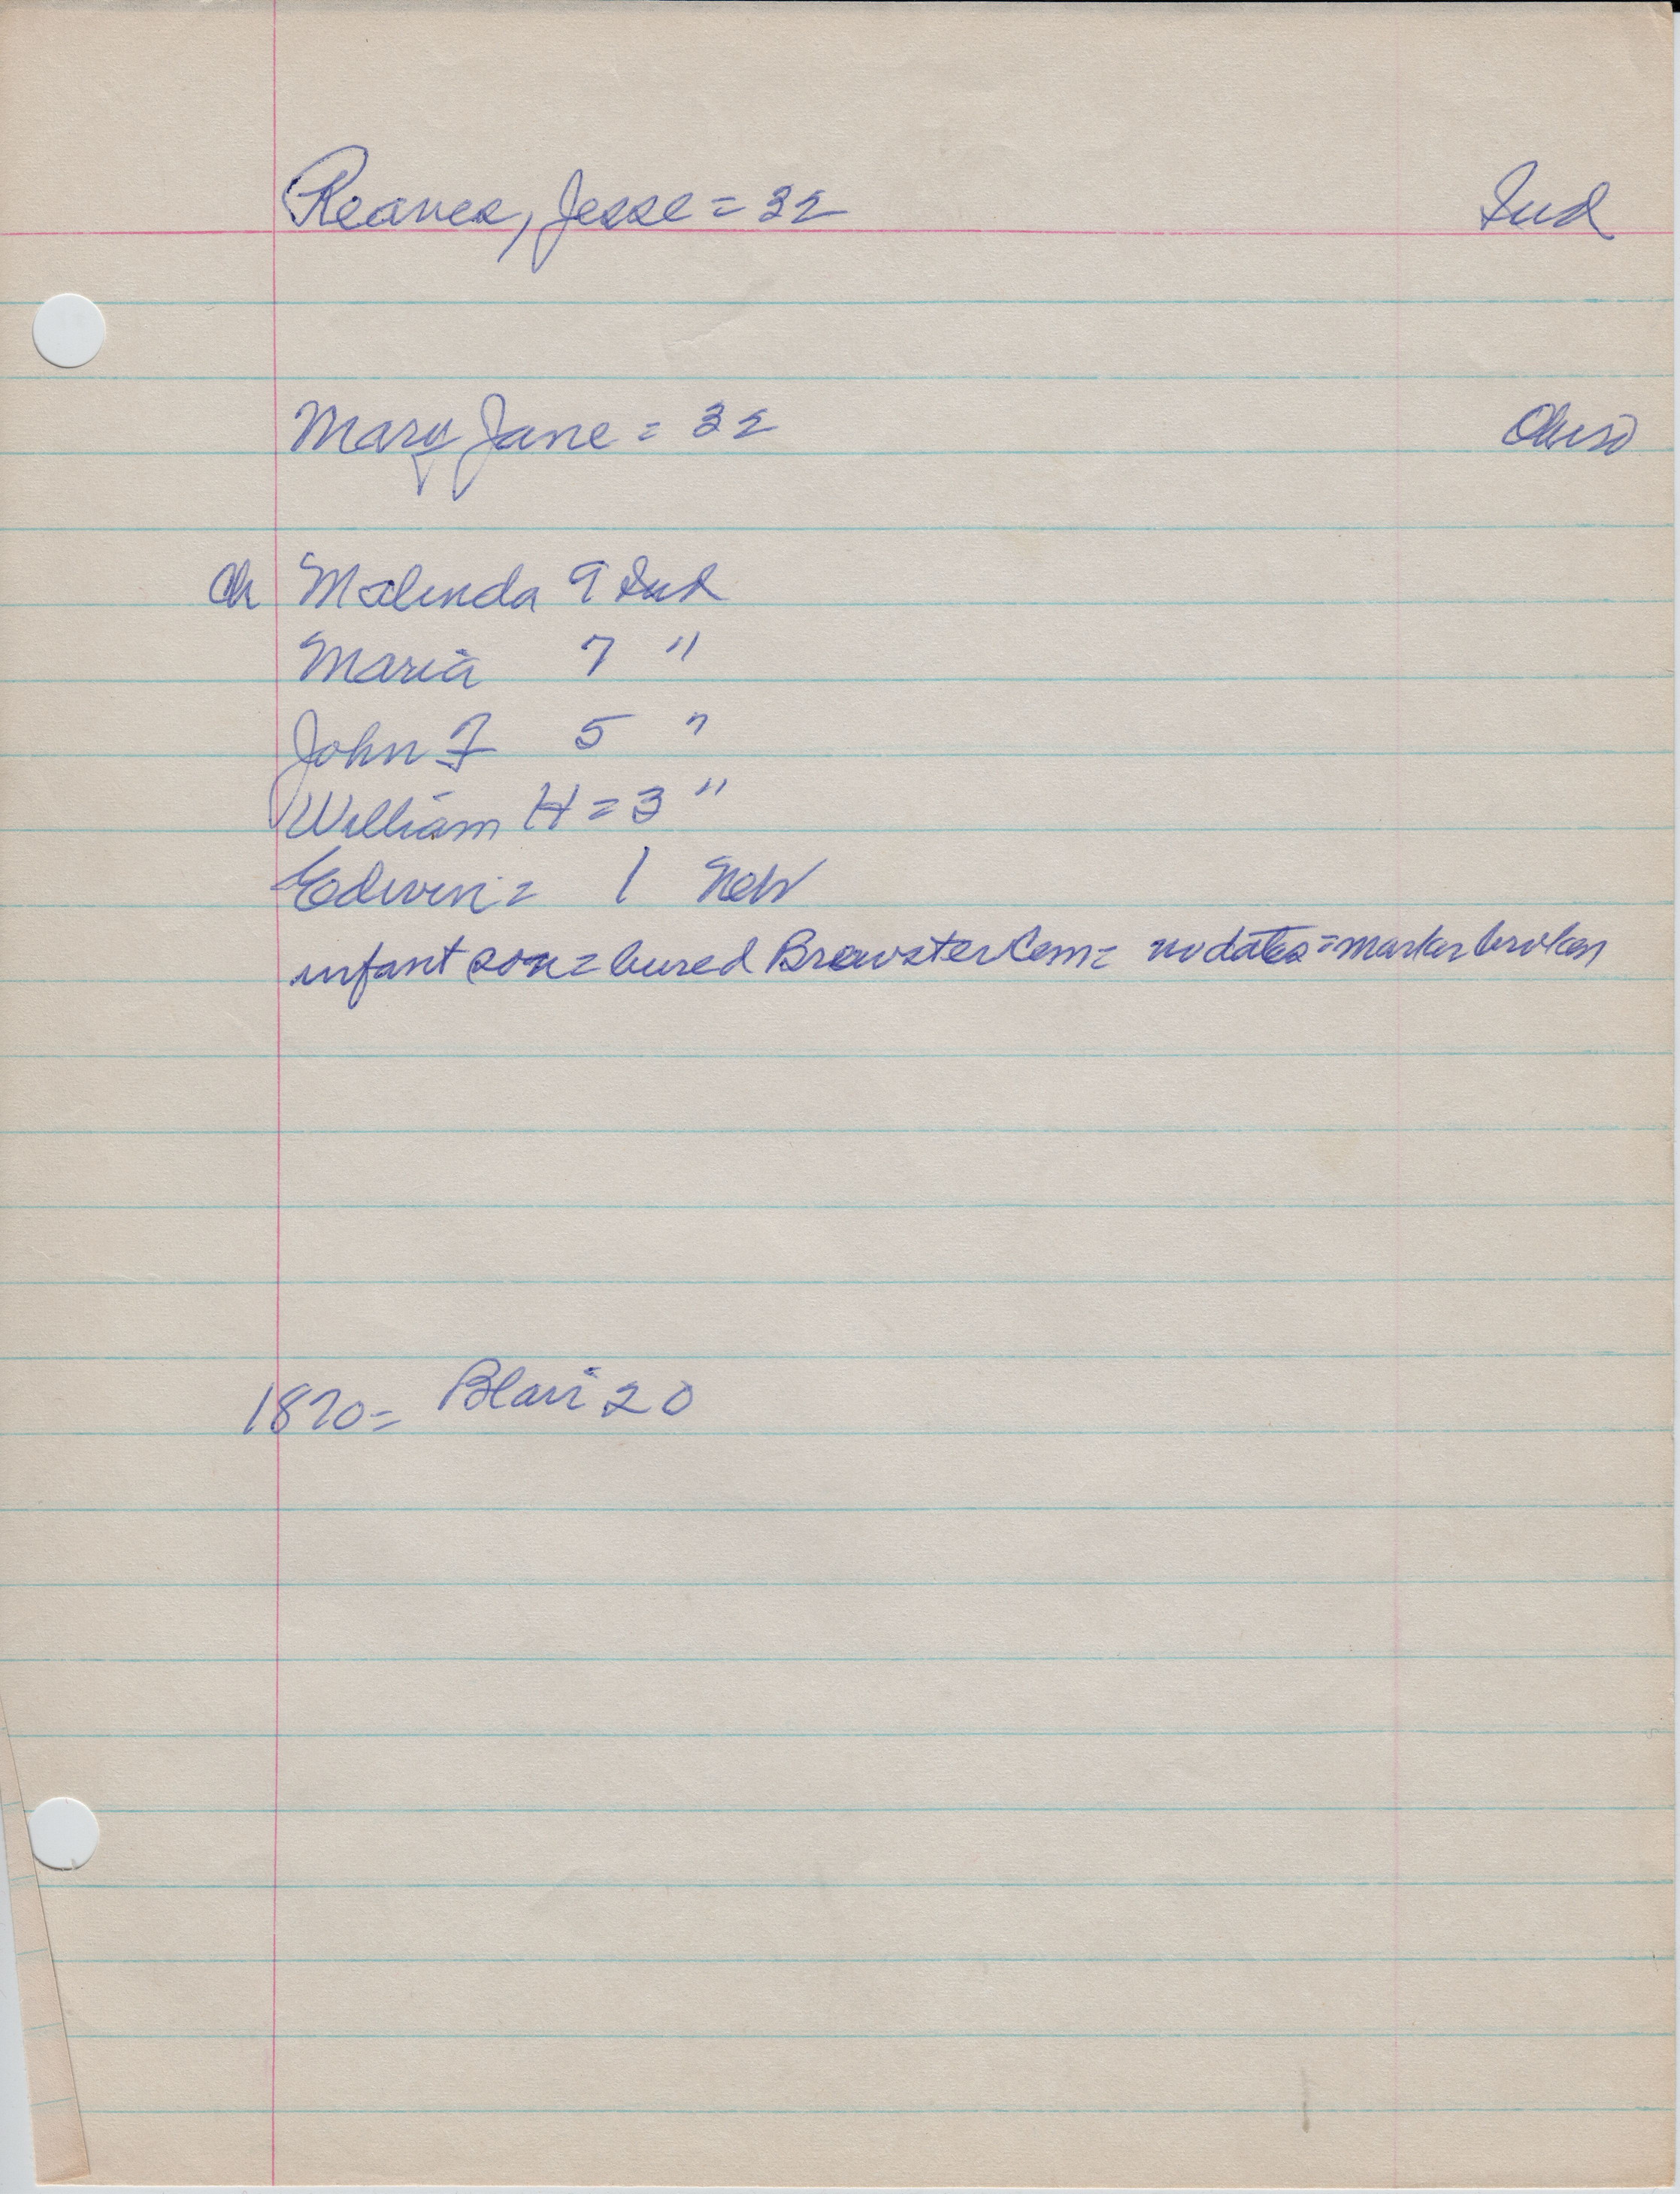 Reaves, Jesse = 32 Ind
Mary Jane = 32 Ohio
Ch Malinda 9 Ind
Maria 7 "
John F 5 "
William H = 3 "
Edwin = 1 Neb
infant son = buried Brewster Cem = no dates = marker broken
1870 = Blair 20